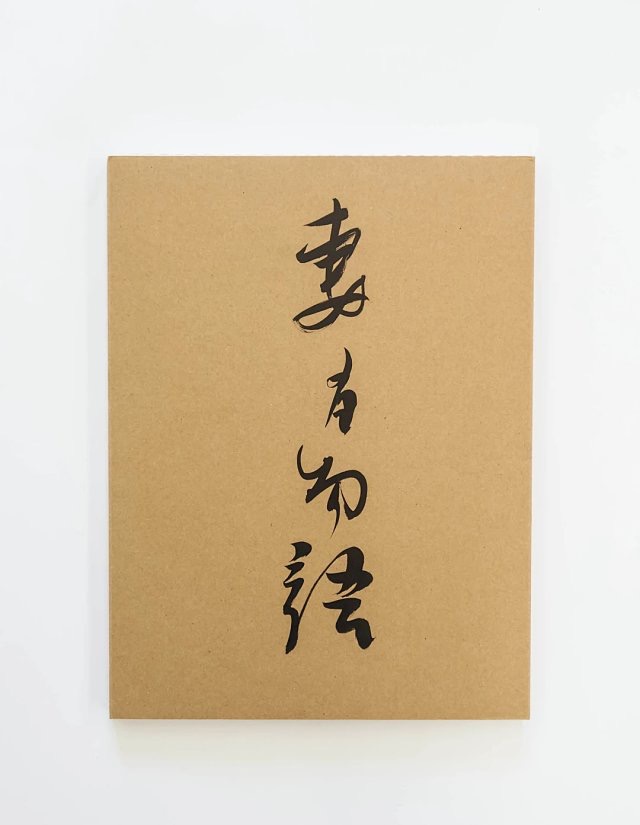 妻有物語